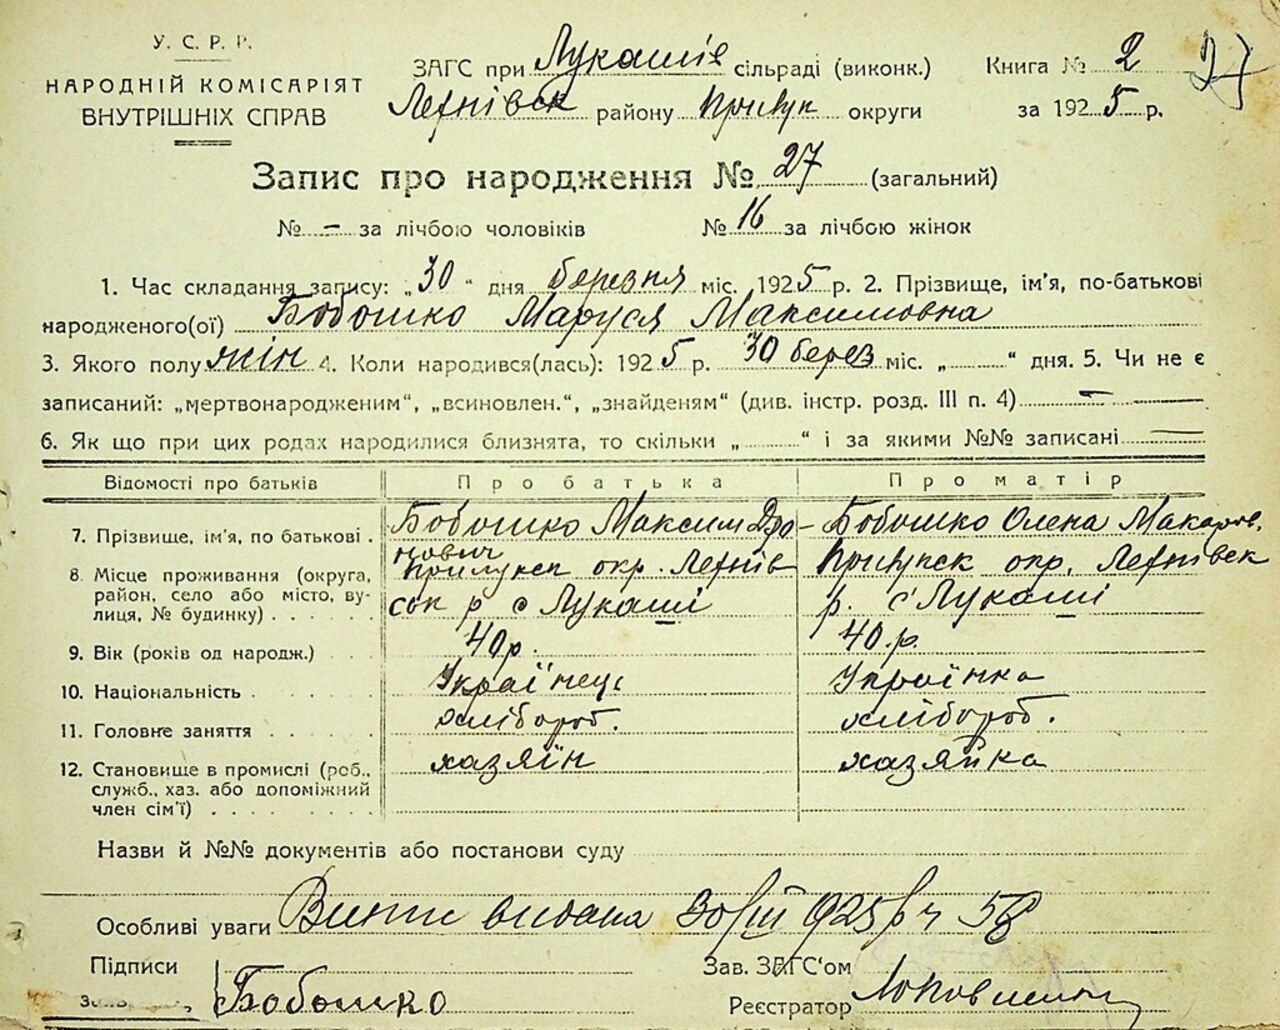 У. С. Р. Р.
НАРОДНІЙ КОМІСАРІЯТ
ВНУТРІШНІХ СПРАВ
ЗАГС при Лукашів сільраді (виконк.)
Книга № 2 27
район у Прилук округи
за 1925 р.
Запис про народження № 27 (загальний)
№ – за лічбою чоловіків № 16 за лічбою жінок
1. Час складання запису: „30“ дня березня міс. 1925 р. 2. Прізвище, ім'я, по-батькові
народженого(ої) Бобошко Маруся Максимовна
3. Якого полу жін 4. Коли народився(лась): 1925 р. 30 берез міс. „ “ дня. 5. Чи не є
записаний: „мертвонародженим“, „всиновлен.“, „знайденям“ (див. інстр. розд. III п. 4) —
6. Як що при цих родах народилися близнята, то скільки „ “ і за якими №№ записані —
Відомості про батьків Про батька Про матір
7. Прізвище, ім'я, по батькові . Бобошко Максим Бобошко Олена Макаров.
8. Місце проживання (округа, район, село або місто, вулиця, № будинку) окр. р с Лукаші Прилупск окр. р. с Лукаші
9. Вік (років од народж.) 40 р. 40. р.
10. Національність Українець Українка
11. Головне заняття хлібороб. хлібороб.
12. Становище в промислі (роб., служб., хаз. або допоміжний член сім'ї) хазяїн хазяйка
Назви й №№ документів або постанови суду
Особливі уваги видана 30/III 925 р ч 58
Підписи
Бобошко
Зав. ЗАГС‘ом
Реєстратор